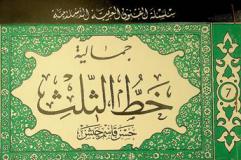 سلسلة الفنون العربية الإسلامية
جمالية
خط الثلث
7